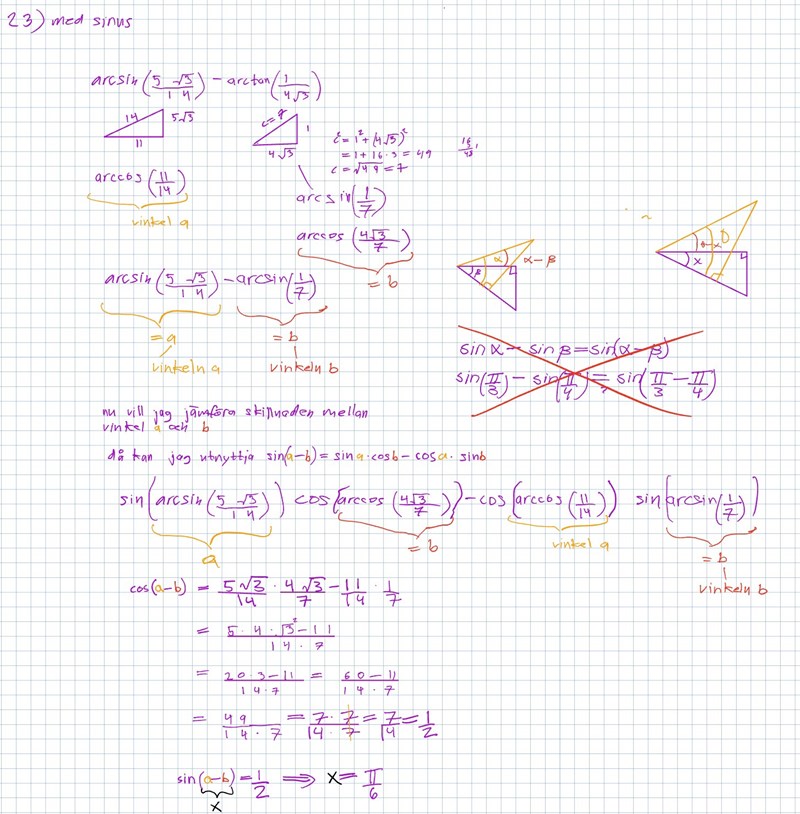 23) med sinus
arcsin(5√3/14) − arctan(1/4√3)
14 5√3
11
c=7 1
4√3
c²=1²+(4√3)²
=1+16·3=49
c=√49=7
arccos(11/14)
vinkel a
arcsin(1/7)
arccos(4√3/7)
=b
arcsin(5√3/14) − arcsin(1/7)
=a =b
vinkeln a vinkeln b
β α α−β
x
sin α − sin β = sin(α − β)
sin(π/3) − sin(π/4) = sin(π/3 − π/4)
nu vill jag jämföra skillnaden mellan
vinkel a och b
då kan jag utnyttja sin(a−b) = sina·cosb − cosa·sinb
sin(arcsin(5√3/14)) cos(arccos(4√3/7)) − cos(arccos(11/14)) sin(arcsin(1/7))
a =b vinkel a =b
vinkeln b
cos(a−b) = 5√3/14 · 4√3/7 − 11/14 · 1/7
= 5·4·√3²−11/14·7
= 20·3−11/14·7 = 60−11/14·7
= 49/14·7 = 7·7/14·7 = 7/14 = 1/2
sin(a−b) = 1/2 ⟹ x = π/6
x